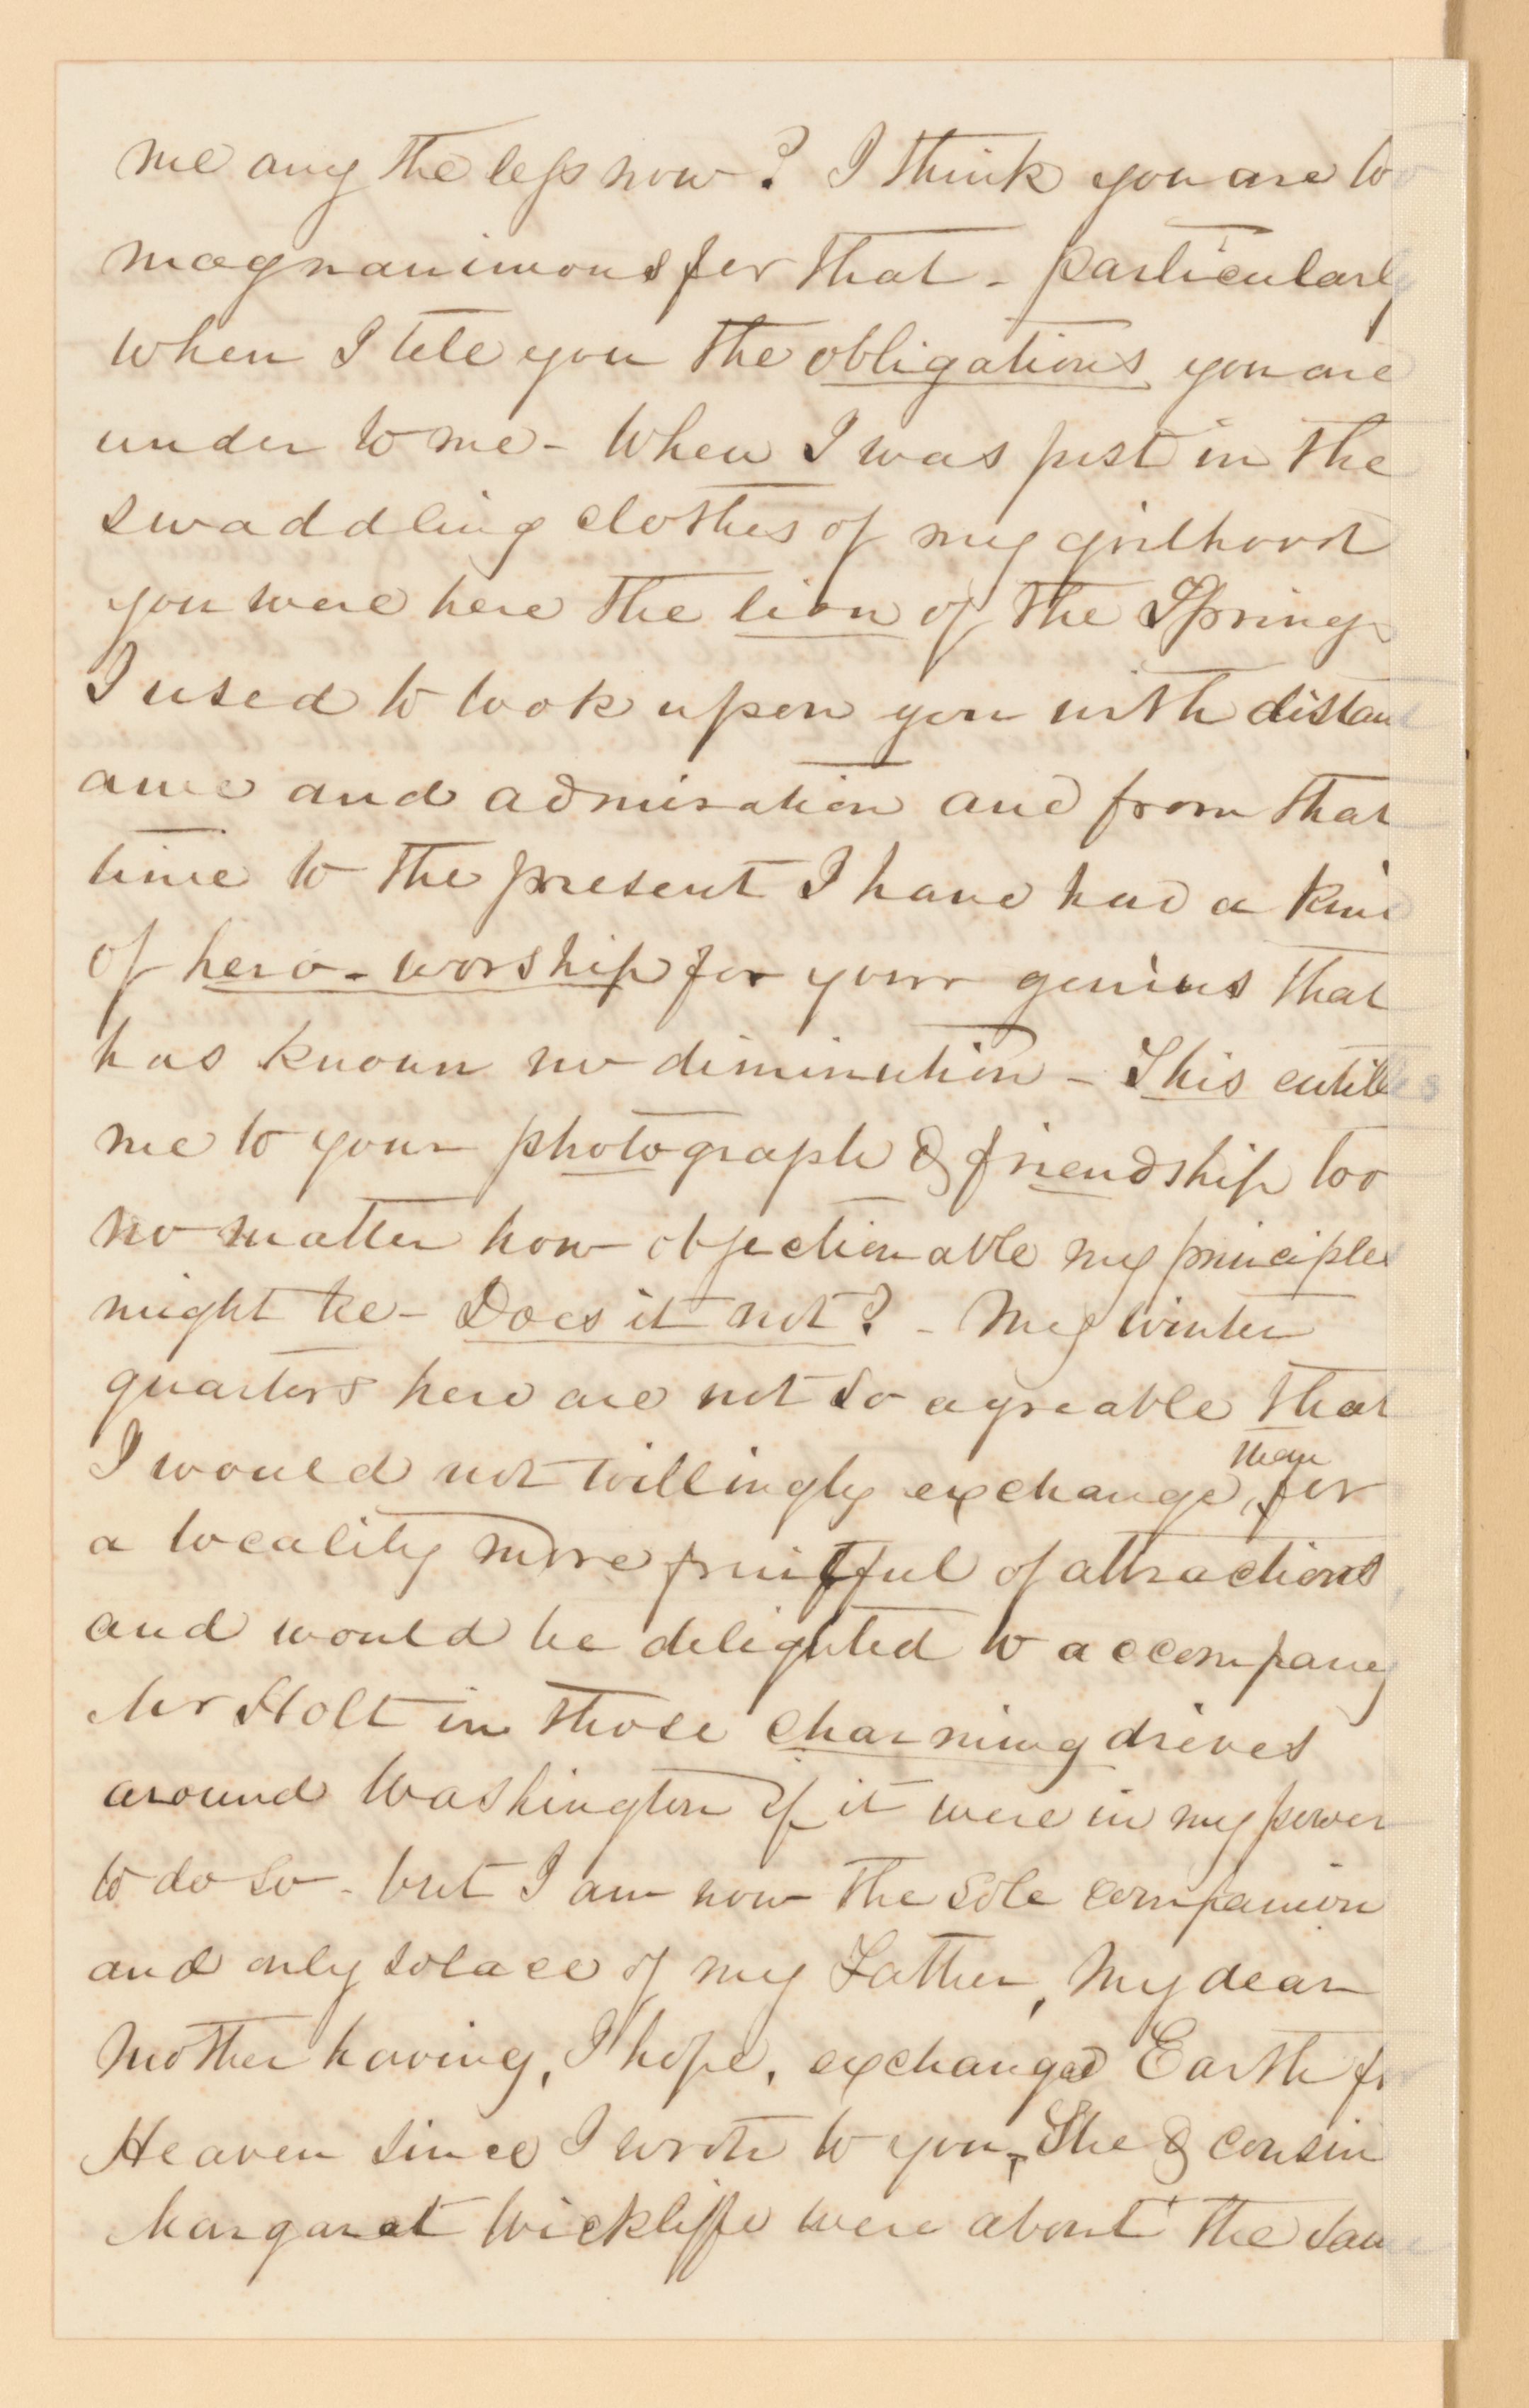 me any the less now? I think you are too
magnanimous for that - particularly
when I tell you the obligations you are
under to me - When I was just in the
swaddling clothes of my girlhood
you were here the lion of the Springs
I used to look upon you with distant
awe and admiration and from that
time to the present I have had a kind
of hero-worship for your genius that
has known no diminution - This entitles
me to your photograph & friendship too
no matter how objectionable my principles
might be - Does it not? - My winter
quarters here are not so agreable that
I would not willingly exchange, them for
a locality more fruitful of attractions
and would be delighted to accompany
Mr Holt in those charming drives
around Washington if it were in my power
to do so - but I am now the sole companion
and only solace of my Father, My dear
Mother having, I hope, exchanged Earth for
Heaven since I wrote to you, She & cousin
Margaret Wickliffe were about the same